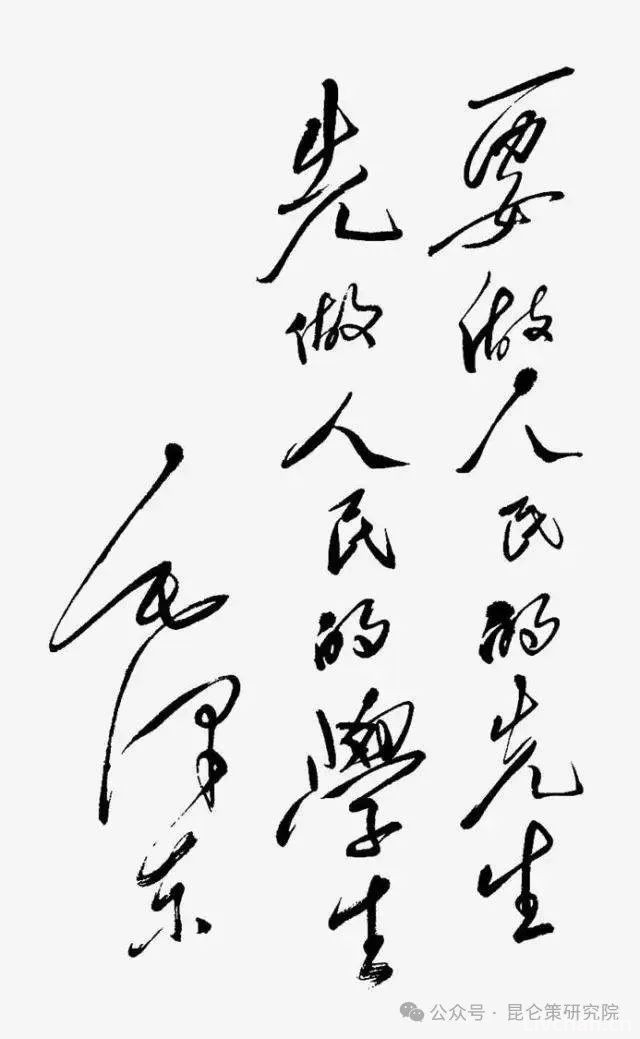 要做人民的先生
先做人民的學生
毛泽东
公众号·昆仑策研究院